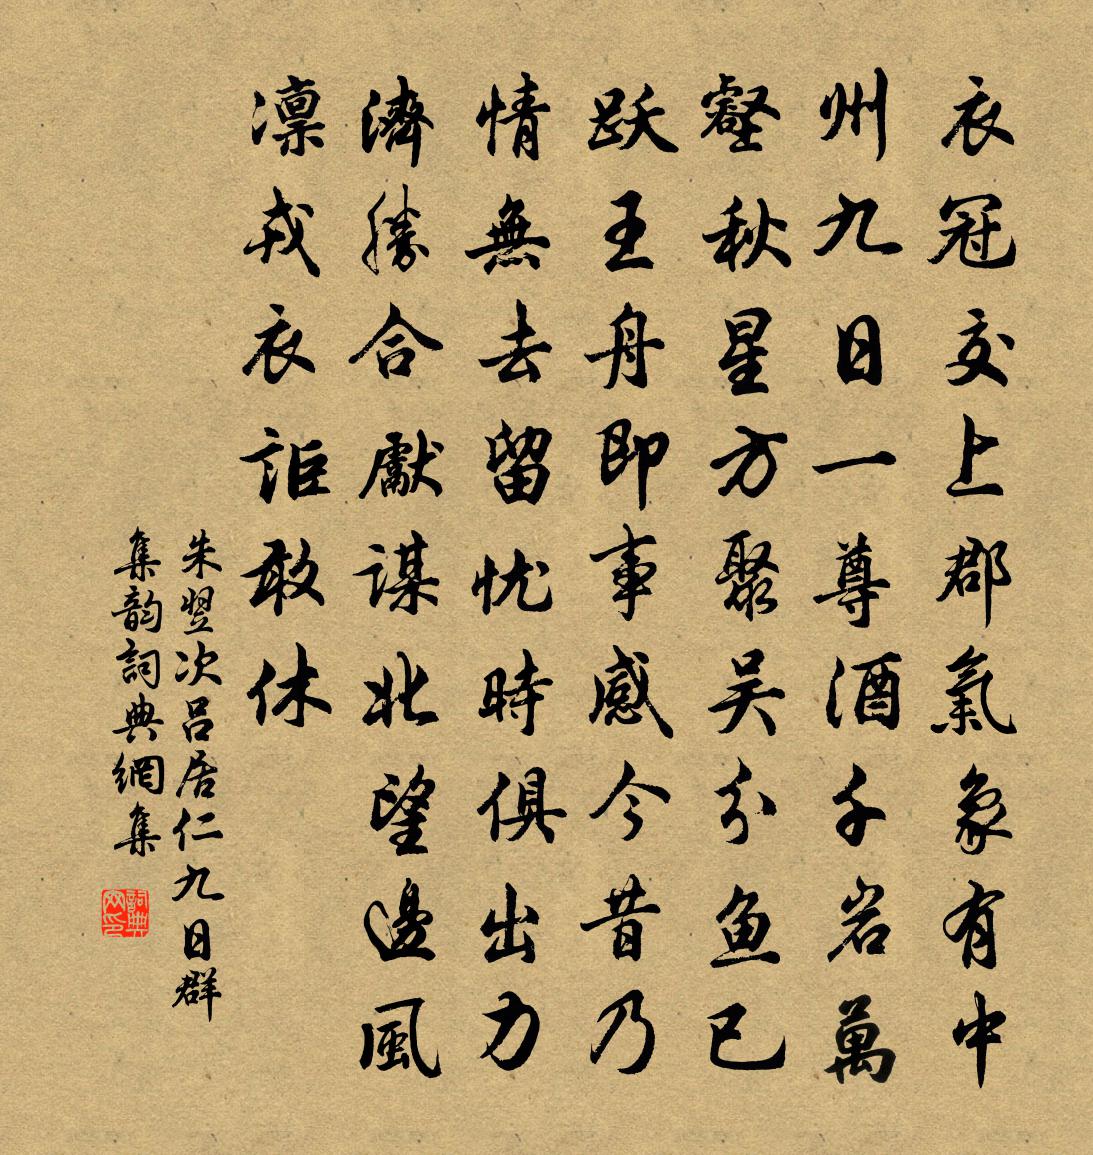 衣冠交上郡氣象有中
州九日一尊酒千岩萬
壑秋星方聚吴分魚已
跃王舟即事感今昔乃
情無去留忧時俱出力
濟勝合獻謀北望邊風
凜戎衣詎敢休
朱翌次呂居仁九日群
集韵詞典網集
詞典网印